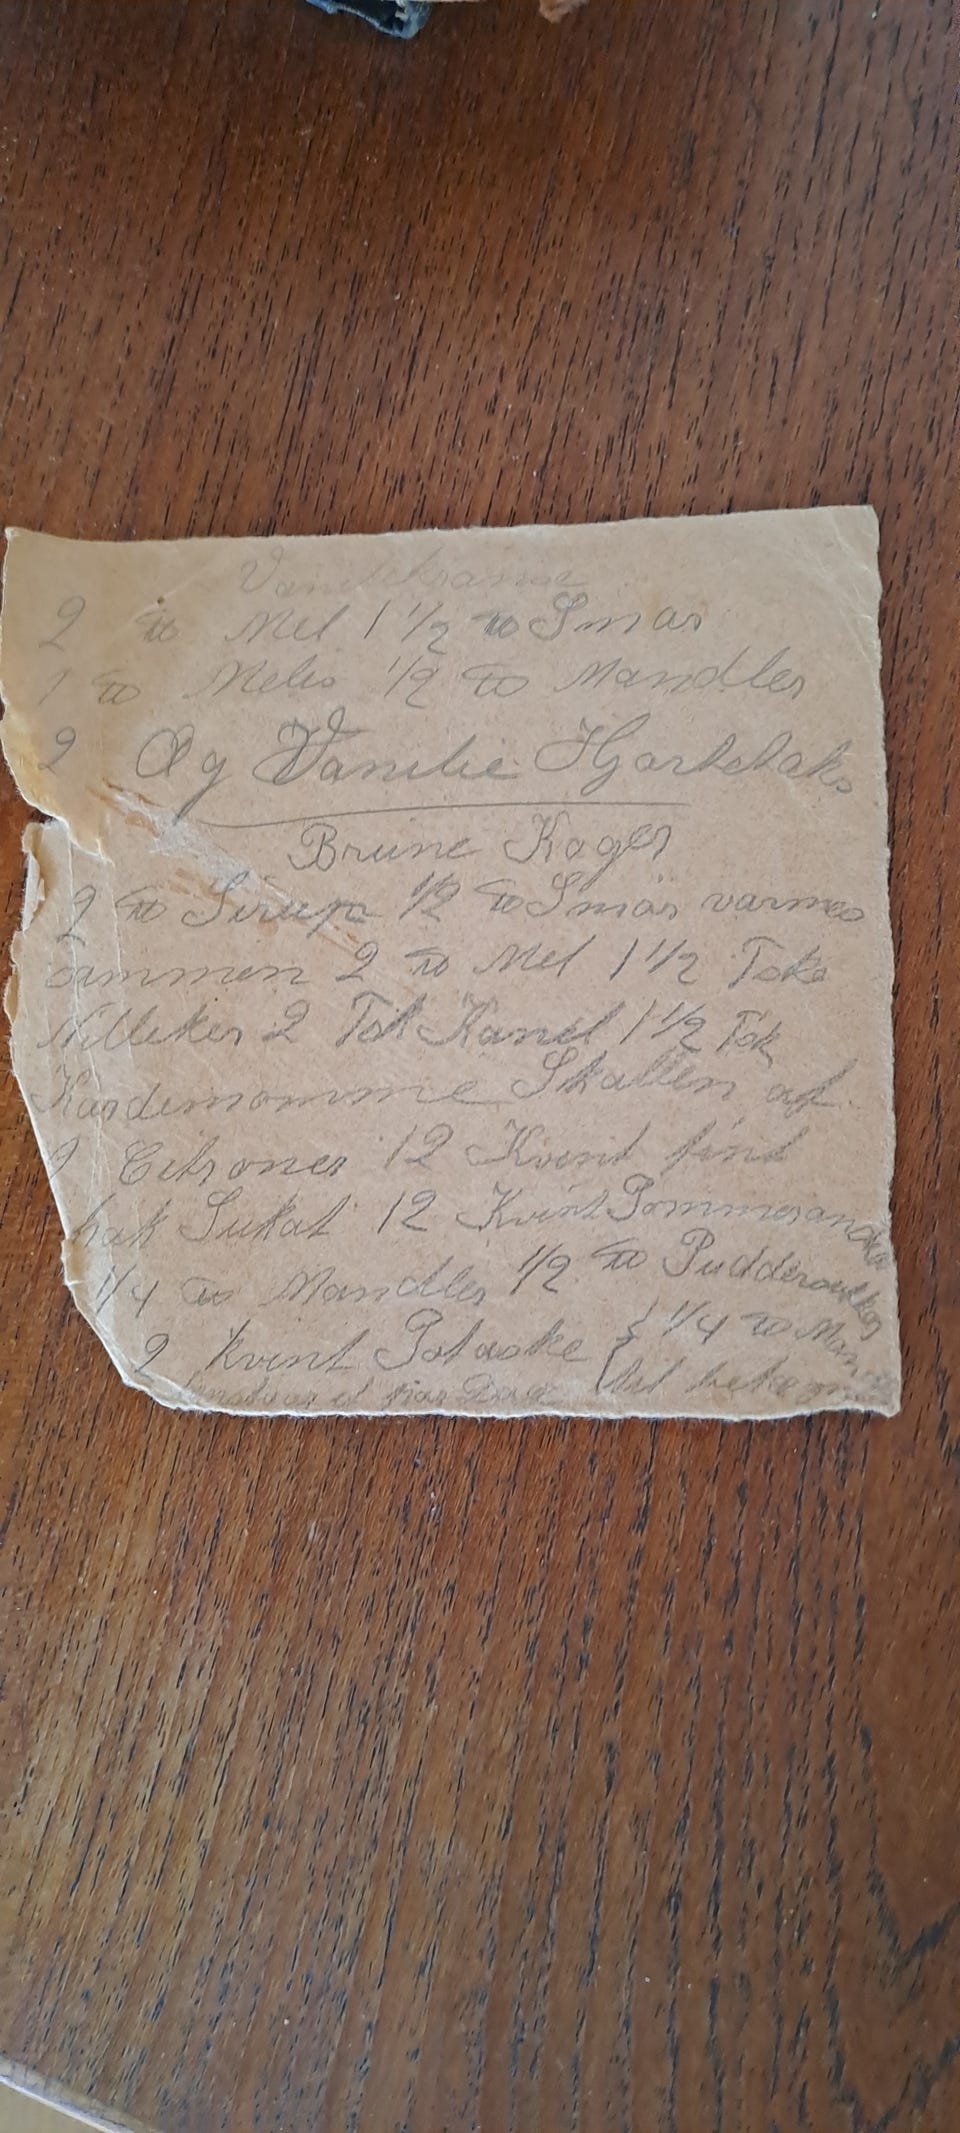 Vanillekranse
2 ℔ Mel 1 1/2 ℔ Smør
1 ℔ Melis 1/2 ℔ Mandler
2 Æg Vanilie Hjortetaks
Brune Kager
2 ℔ Sirup 1/2 ℔ Smør varmes
sammen 2 ℔ Mel 1 1/2 Tsk
Nelleker 2 Tsk Kanel 1 1/2 Tsk
Kardemomme Skallen af
2 Citroner 12 Kvint fint
hak Sukat 12 Kvint Pommerandser
1/4 ℔ Mandler 1/2 ℔ Puddersukker
2 Kvint Potaske { 1/4 ℔
et par Dage